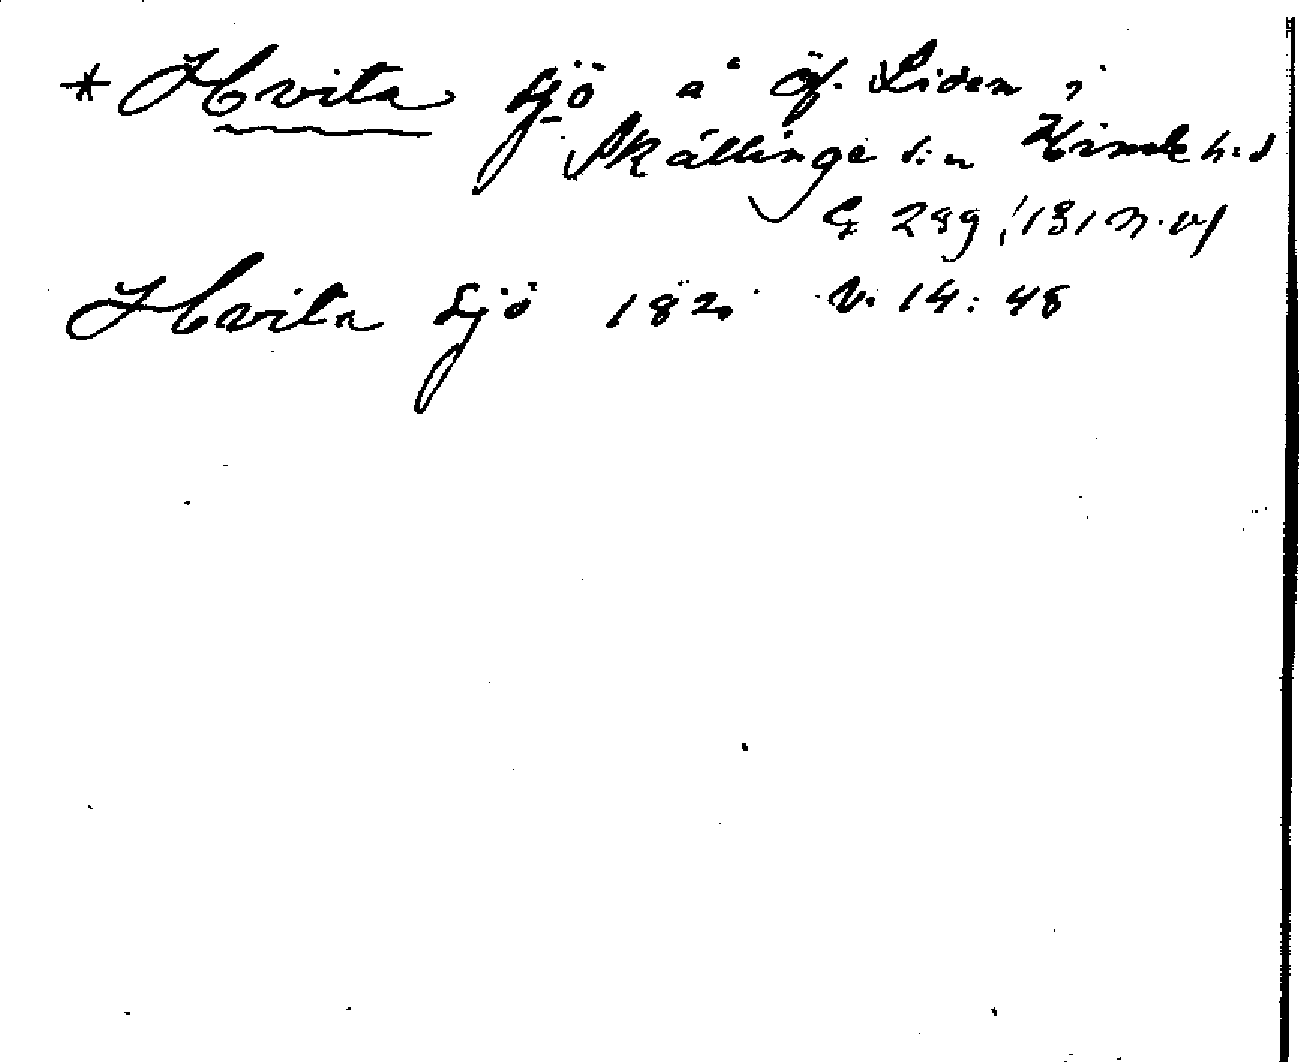 * Hvita sjö å Öf. Liden i
Skällinge s:n Himle h:d
G 239
Hvita sjö 182 V. 14: 48